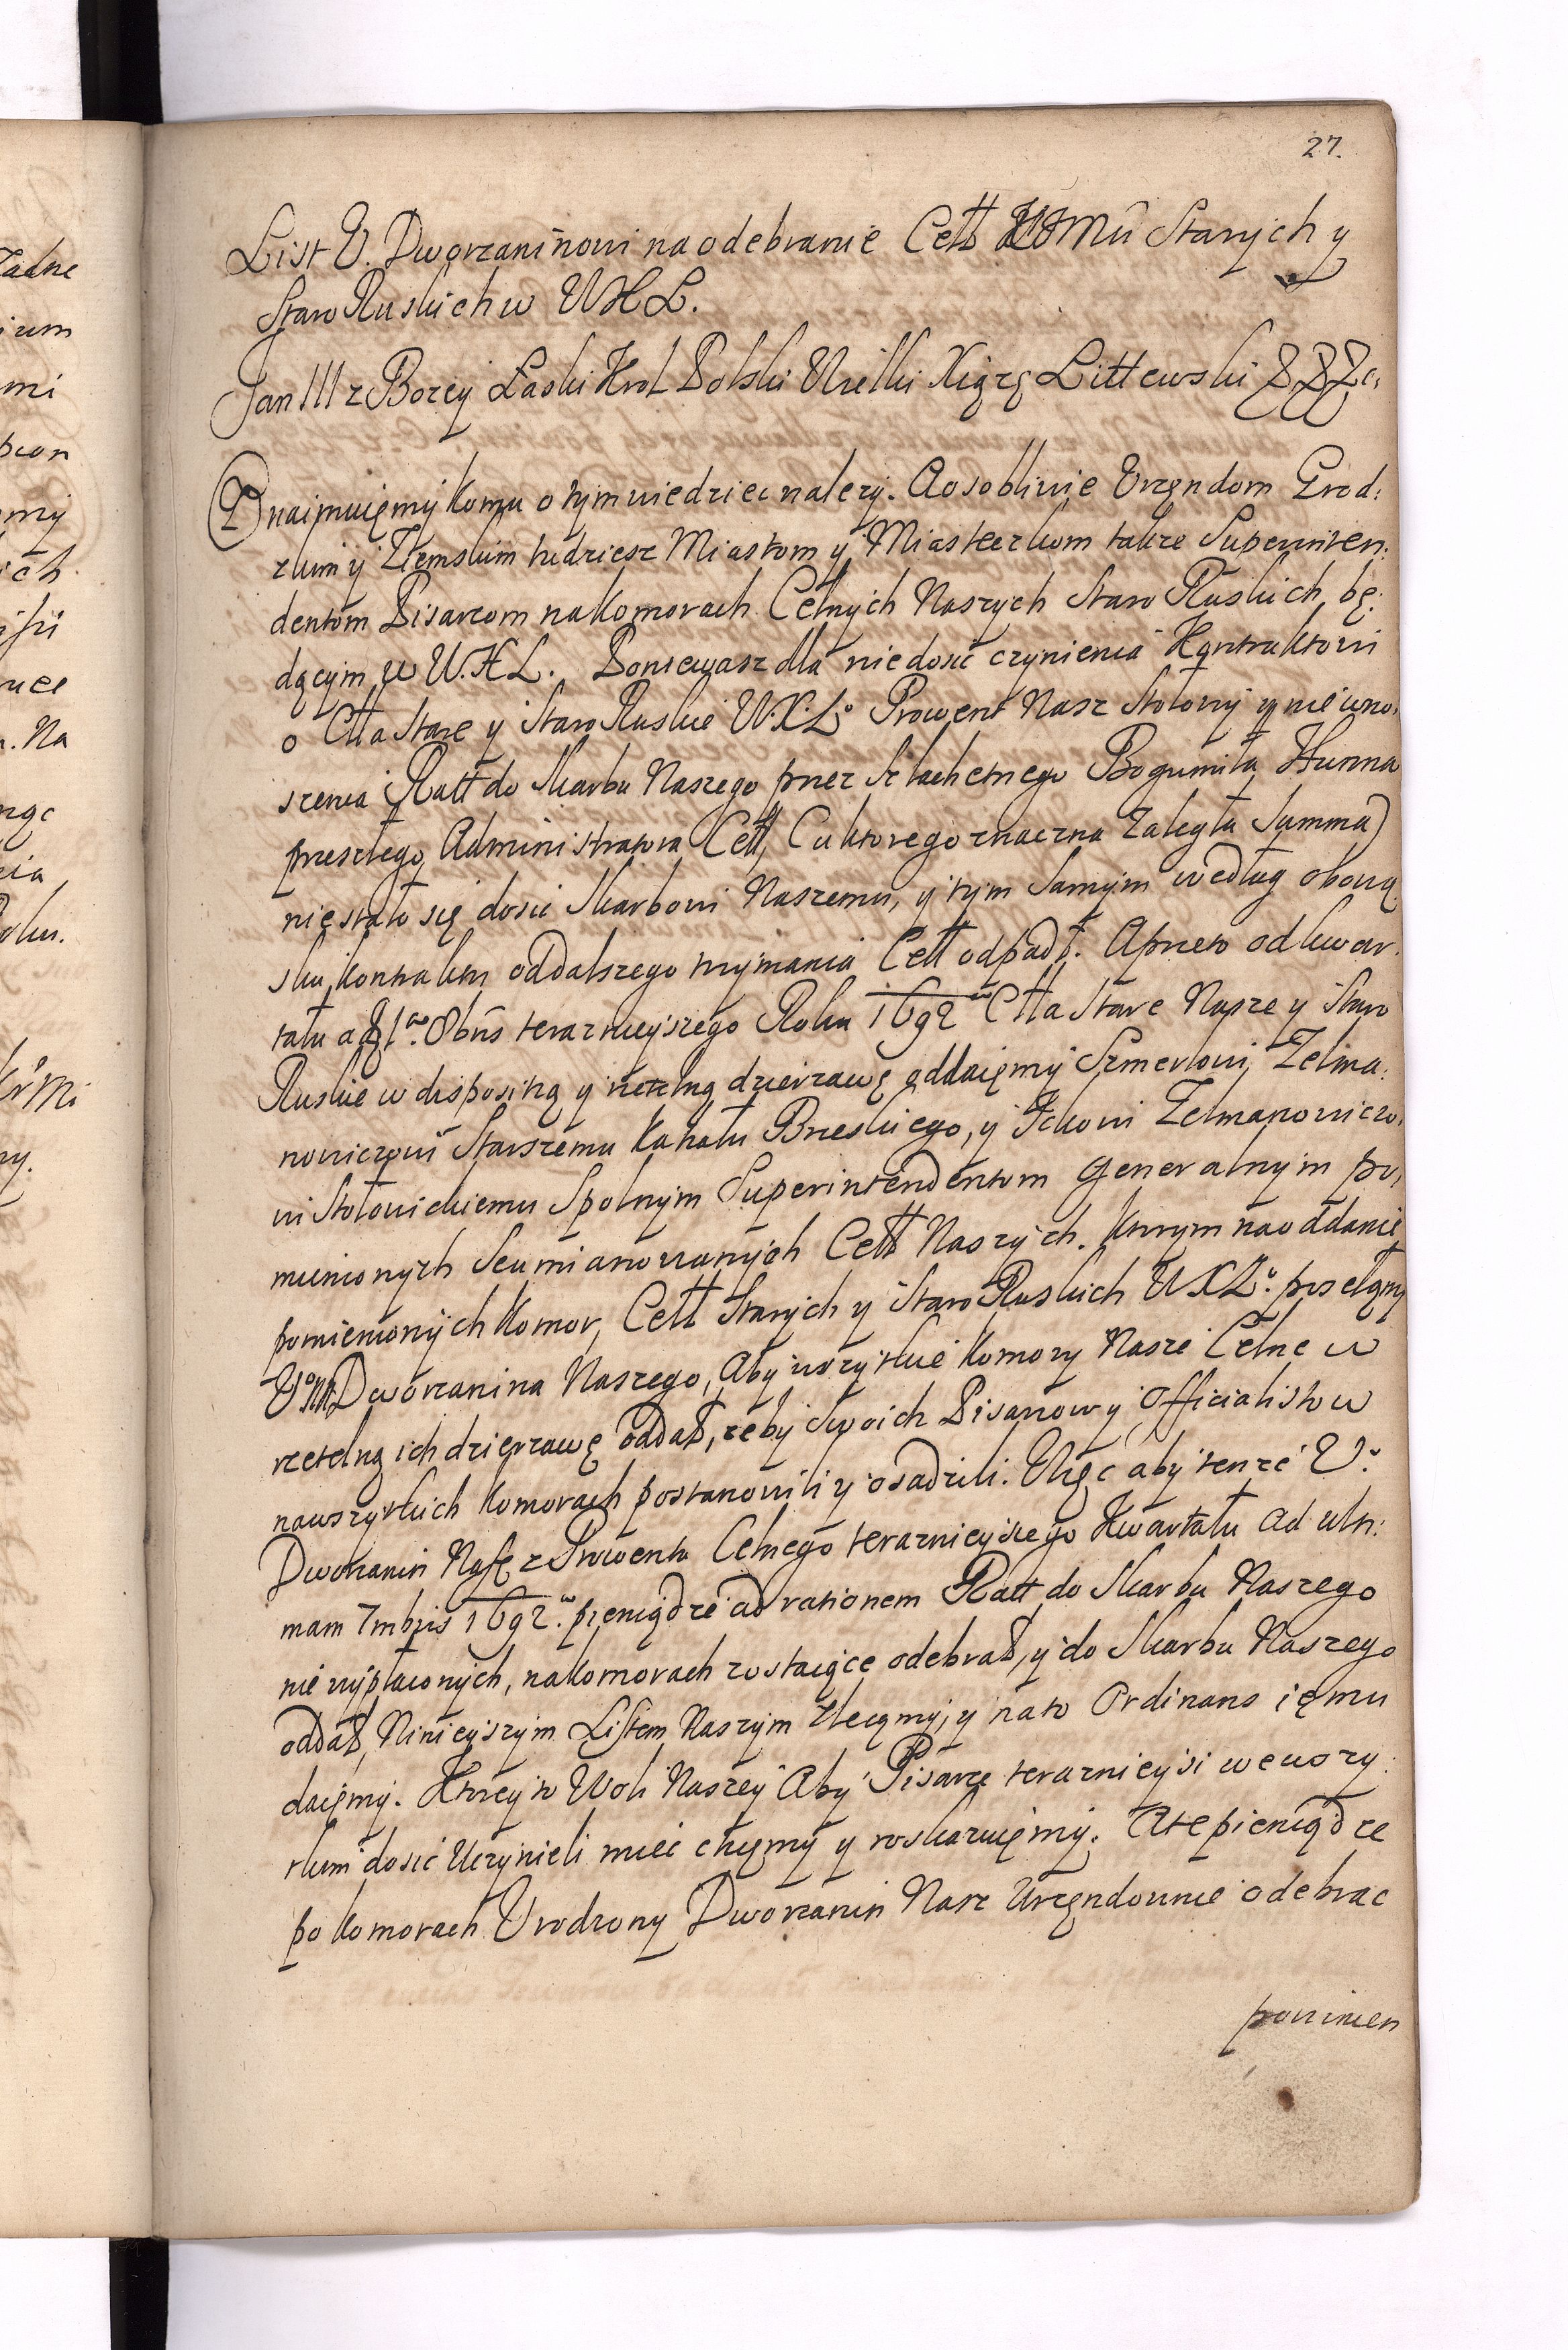 27.
List U. Dworzaninowi na odebranie Cełł JKMMci Starych y
Staro Ruskich w WXL.
Jan III z Bozey Łaski Krol Polski Wielki Xiąze Littewski
Znaimuięmy komu o tym wiedziec nalezy. A osobliwie Urzendom Grod:
zkim y Ziemskim tudziesz Miastom y Miasteczkom takze Superinten:
dentom Pisarzom na komorach Celnych Naszych Staro Ruskich bę:
dącym w W.X.L. Poniewasz dla niedosic czynienia Kontraktowi
o Cłła Stare y Staro Ruskie W.X.Lo Prowent Nasz Stołowy y nie wno:
szenia Ratt do Skarbu Naszego przez Szlachetnego Bogumiła Hunna
przeszłego Administratora Cełł, (u ktorego znaczna zaległa Summa)
nie stało się dosić Skarbowi Naszemu, y tym samym według obowią
sku kontraktu od dalszego trzymania Cełł odpadł. A przeto od kwar:
tału a 1ma 8bris terazniejszego Roku 1692 Cłła Stare Nasze y Staro
Ruskie w disposiną y rzetelną dzierzawę oddaięmy Szmerlowi Zelma:
nowiczowi Starszemu kahału Brzeskiego, y Ickowi Zelmanowiczo:
wi Stołowickiemu Spolnym Superintendentom Generalnym po:
mienionych seu mianowanych Cełł Naszych. Ktorym na oddanie
pomienionych komor, Cełł Starych y Staro Ruskich WXLo. posełamy
Uo. Dworzanina Naszego, Aby wszytkie komory Nasze Celne w
rzetelną ich dzierzawę oddał, zeby swoich Pisarzow y Officialistow
na wszytkich komorach postanowili y osadzili. Więc aby tenze Uo.
Dworzanin Nasz z Prowentu Celnego terazniejszego Kwartału ad ulti:
mam 7mbris 1692. pieniądze ad rationem Ratt do Skarbu Naszego
nie wypłaconych, na komorach zostaiące odebrał, y do Skarbu Naszego
oddał, Ninieyszym Listem Naszym zlecamy, y na to Ordinans ięmu
daięmy. Ktorey to Woli Naszey Aby Pisarze terazniejsi we wszy:
tkim dosić uczynieli mieć chcęmy y roskazuięmy. A te pieniądze
po komorach Urodzony Dworzanin Nasz Urzędownie odebrac
powinien